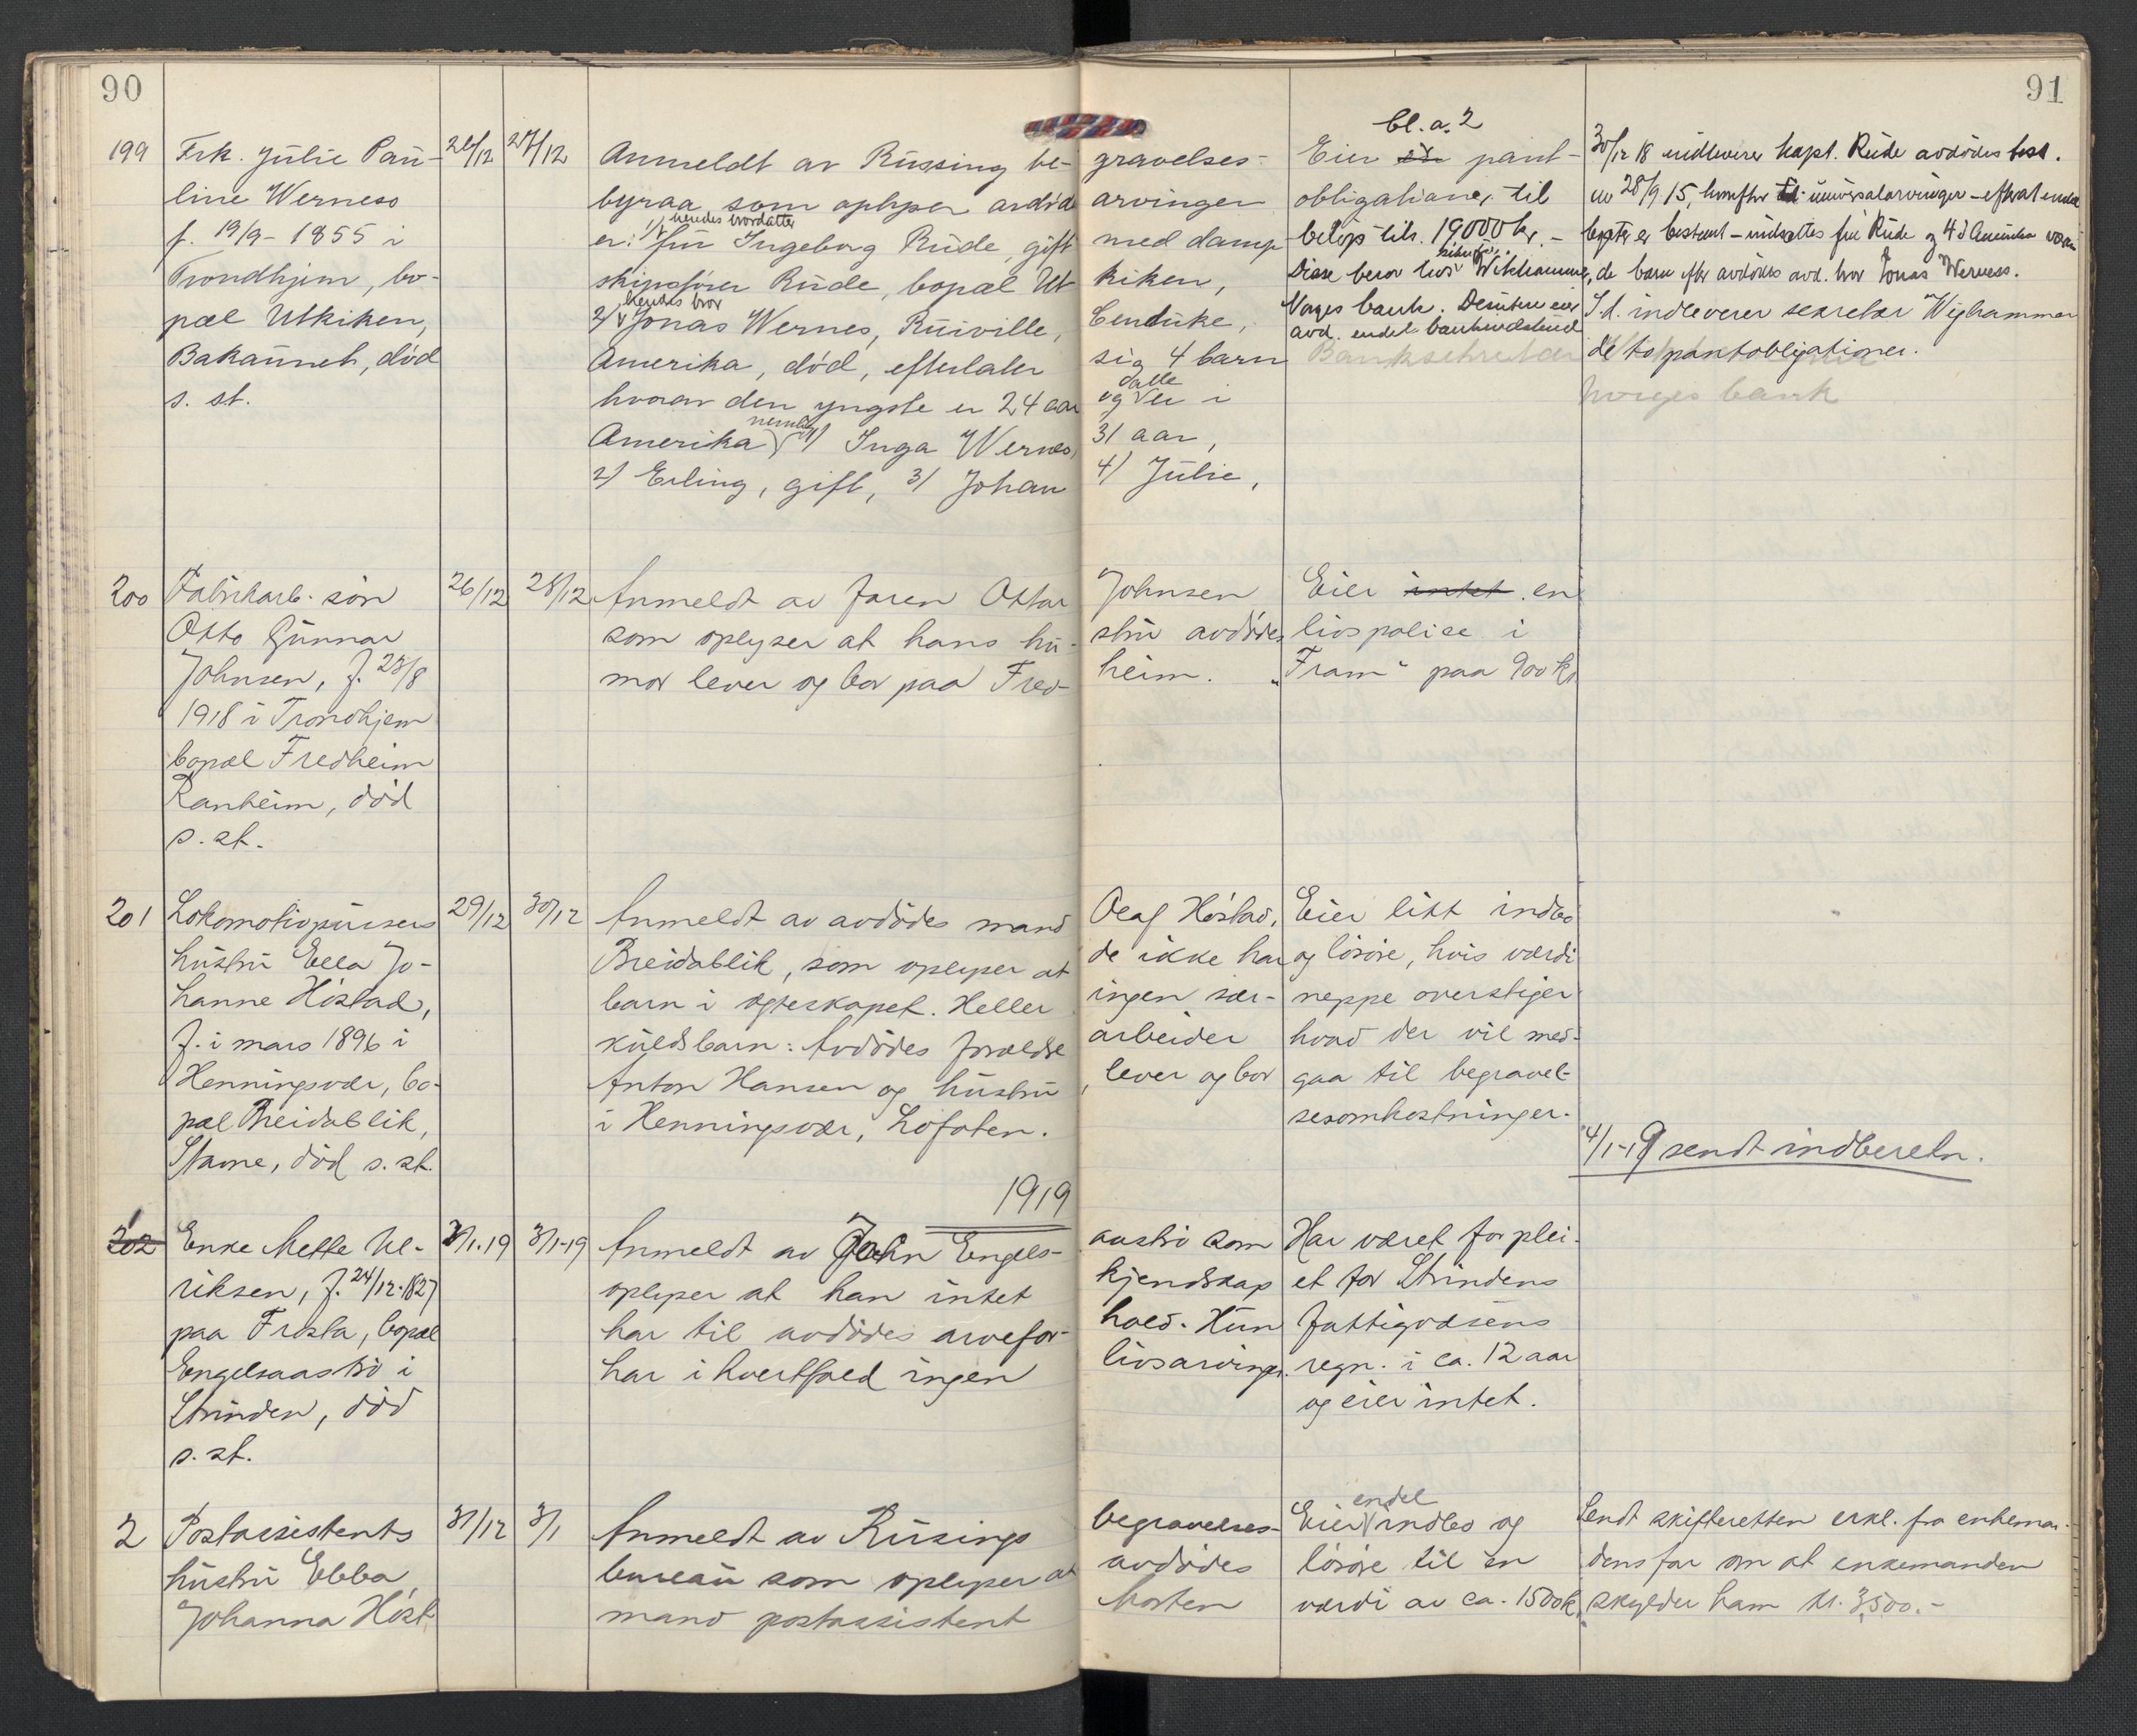 90
91
199
Frk. Julie Pau-
line Werness
f. 19/9-1855 i
Trondhjem, bo-
pæl Utkiken,
Bakaunet, død
s. st.
27/12
Anmeldt av Russing be- gravelses-
byraa som oplyser avdødes arvinger
er: 1/ hendes brordatter fru Ingeborg Rude, gift med damp-
skipsfører Rude, bopæl Ut- kiken,
2/ hendes bror Jonas Wernes,
Amerika, død, efterlater sig 4 barn
hvorav den yngste er 24 aar og alle i
Amerika nemlig 1/ Inga Wernes, 31 aar,
2/ Erling, gift, 3/ Johan 4/ Julie,
bl. a. 2
Eier pant-
obligationer til
beløp tils. 19000 kr. -
Disse beror hos
Norges bank. Desuten eier
avd. endel
Banksekretær
30/12 18 indleverer kapt. Rude avdødes test.
av 28/9 15, hvorefter universalarvinger - efterat endel
er bestemt - indsættes fru Rude og 4 i Amerika
de barn efter avdødes avd. bror Jonas Werness.
S.d. indleverer sekretær Wighammer
de to pantobligationer.
Norges bank
200
Fabrikarb. søn
Otto Gunnar
Johnsen, f. 23/8
1918 i Trondhjem
bopæl Fredheim
Ranheim, død
s. st.
26/12
28/12
Anmeldt av faren Ottar Johnsen
som oplyser at hans hu- stru avdødes
mor lever og bor paa Fred- heim.
Eier intet en
livspolice i
"Fram" paa 900 kr
201
Lokomotivpussers
hustru Ella Jo-
hanne Høstad,
f. i mars 1896 i
Henningsvær, bo-
pæl Breidablik,
Stavne, død s. st.
29/12
30/12
Anmeldt av avdødes mand Olaf Høstad,
Breidablik, som oplyser at de ikke har
barn i ægteskapet. Heller ingen sær-
kuldsbarn. Avdødes forældre arbeider
Anton Hansen og hustru, lever og bor
i Henningsvær, Lofoten.
Eier litt indbo
og løsøre, hvis værdi
neppe overstiger
hvad der vil med-
gaa til begravel-
sesomkostninger.
4/1-19 sendt indberetn.
1919
202
1
Enke Mette Ul-
riksen, f. 24/12-1827
paa Frosta, bopæl
Engelsaastrø i
Strinden, død
s. st.
3/1-19
Anmeldt av John Engels- aastrø som
oplyser at han intet kjendskap
har til avdødes arvefor- hold. Hun
har i hvertfald ingen livsarvinger.
Har været forplei-
et for Strindens
fattigvæsens
regn. i ca. 12 aar
og eier intet.
2
Postassistents
hustru Ebba
Johanna Høst
31/12
3/1
Anmeldt av Rusings begravelses-
bureau som oplyser at avdødes
mand postassistent Morten
Eier endel indbo og
løsøre til en
værdi av ca. 1500 kr.
Sendt skifteretten erkl. fra enkeman-
dens far om at enkemanden
skylder ham kr. 3,500.-